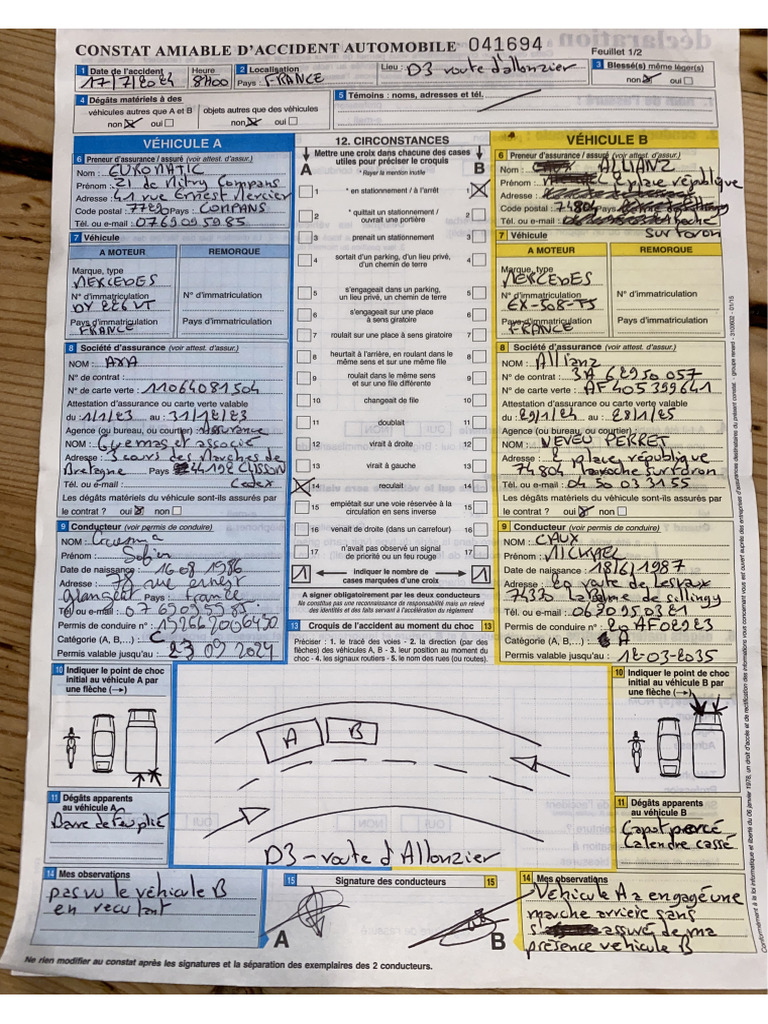 CONSTAT AMIABLE D'ACCIDENT AUTOMOBILE 041694
Feuillet 1/2
1 Date de l'accident Heure
17/7/2024 8H00
2 Localisation
Pays : FRANCE
Lieu : D3 route d'allonzier
3 Blessé(s) même léger(s)
non oui
4 Dégâts matériels à des
véhicules autres que A et B objets autres que des véhicules
non oui non oui
5 Témoins : noms, adresses et tél.
VÉHICULE A
6 Preneur d'assurance / assuré (voir attest. d'assur.)
Nom : EUROMATIC
Prénom : ZI de Mitry Compans
Adresse : 41 rue Ernest Mercier
Code postal : 77290 Pays : COMPANS
Tél. ou e-mail : 0769095985
7 Véhicule
A MOTEUR REMORQUE
Marque, type
MERCEDES
N° d'immatriculation N° d'immatriculation
DY 226 VT
Pays d'immatriculation Pays d'immatriculation
FRANCE
8 Société d'assurance (voir attest. d'assur.)
NOM : AXA
N° de contrat :
N° de carte verte : 11064081504
Attestation d'assurance ou carte verte valable
du : 1/1/23 au : 31/12/23
Agence (ou bureau, ou courtier) : assurance
NOM : Guemas et associé
Adresse : 3 cours des Marches de
Bretagne Pays 44192 CLISSON
Tél. ou e-mail : Cedex
Les dégâts matériels du véhicule sont-ils assurés par
le contrat ? oui non
9 Conducteur (voir permis de conduire)
NOM :
Prénom : Sofien
Date de naissance : 16 08 1986
Adresse : 78 rue ernest
Pays : France
Tél ou e-mail : 0769095985
Permis de conduire n° :
Catégorie (A, B,...) : C
Permis valable jusqu'au : 23 09 2024
10 Indiquer le point de choc
initial au véhicule A par
une flèche (→)
11 Dégâts apparents
au véhicule A
Barre de feu plié
14 Mes observations
pas vu le véhicule B
en reculant
12. CIRCONSTANCES
Mettre une croix dans chacune des cases
utiles pour préciser le croquis
A B
* Rayer la mention inutile
1 * en stationnement / à l'arrêt 1
2 * quittait un stationnement / 2
ouvrait une portière
3 prenait un stationnement 3
4 sortait d'un parking, d'un lieu privé, 4
d'un chemin de terre
5 s'engageait dans un parking, 5
un lieu privé, un chemin de terre
6 s'engageait sur une place 6
à sens giratoire
7 roulait sur une place à sens giratoire 7
8 heurtait à l'arrière, en roulant dans le 8
même sens et sur une même file
9 roulait dans le même sens 9
et sur une file différente
10 changeait de file 10
11 doublait 11
12 virait à droite 12
13 virait à gauche 13
14 reculait 14
15 empiétait sur une voie réservée à la 15
circulation en sens inverse
16 venait de droite (dans un carrefour) 16
17 n'avait pas observé un signal 17
de priorité ou un feu rouge
1 indiquer le nombre de 1
cases marquées d'une croix
A signer obligatoirement par les deux conducteurs
Ne constitue pas une reconnaissance de responsabilité mais un relevé
des identités et des faits servant à l'accélération du règlement
13 Croquis de l'accident au moment du choc 13
Préciser : 1. le tracé des voies - 2. la direction (par des
flèches) des véhicules A, B - 3. leur position au moment du
choc - 4. les signaux routiers - 5. le nom des rues (ou routes).
A B
D3 - route d'Allonzier
15 Signature des conducteurs 15
A B
VÉHICULE B
6 Preneur d'assurance / assuré (voir attest. d'assur.)
Nom : ALLIANZ
Prénom : 2 place république
Adresse :
Code postal : 74804 Pays
Tél. ou e-mail : Roche
sur Foron
7 Véhicule
A MOTEUR REMORQUE
Marque, type
MERCEDES
N° d'immatriculation N° d'immatriculation
EX-508-TS
Pays d'immatriculation Pays d'immatriculation
FRANCE
8 Société d'assurance (voir attest. d'assur.)
NOM : Allianz
N° de contrat : 3A 62950 057
N° de carte verte : AF405399641
Attestation d'assurance ou carte verte valable
du : 29/1/24 au : 28/1/25
Agence (ou bureau, ou courtier) :
NOM : NEVEU PERRET
Adresse : 2 place république
74804 sur Foron
Tél. ou e-mail : 04 50 03 31 55
Les dégâts matériels du véhicule sont-ils assurés par
le contrat ? oui non
9 Conducteur (voir permis de conduire)
NOM : CAUX
Prénom : MICKAEL
Date de naissance : 18/6/1987
Adresse : 20 route de Lesvaux
74330 La Balme de sillingy
Tél. ou e-mail : 0620950321
Permis de conduire n° : 20AF02923
Catégorie (A, B,...) : A
Permis valable jusqu'au : 12-03-2035
10 Indiquer le point de choc
initial au véhicule B par
une flèche (→)
11 Dégâts apparents
au véhicule B
Capot percé
Calendre cassé
14 Mes observations
Véhicule A a engagé une
marche arrière sans
s assuré de ma
présence vehicule B
Ne rien modifier au constat après les signatures et la séparation des exemplaires des 2 conducteurs.